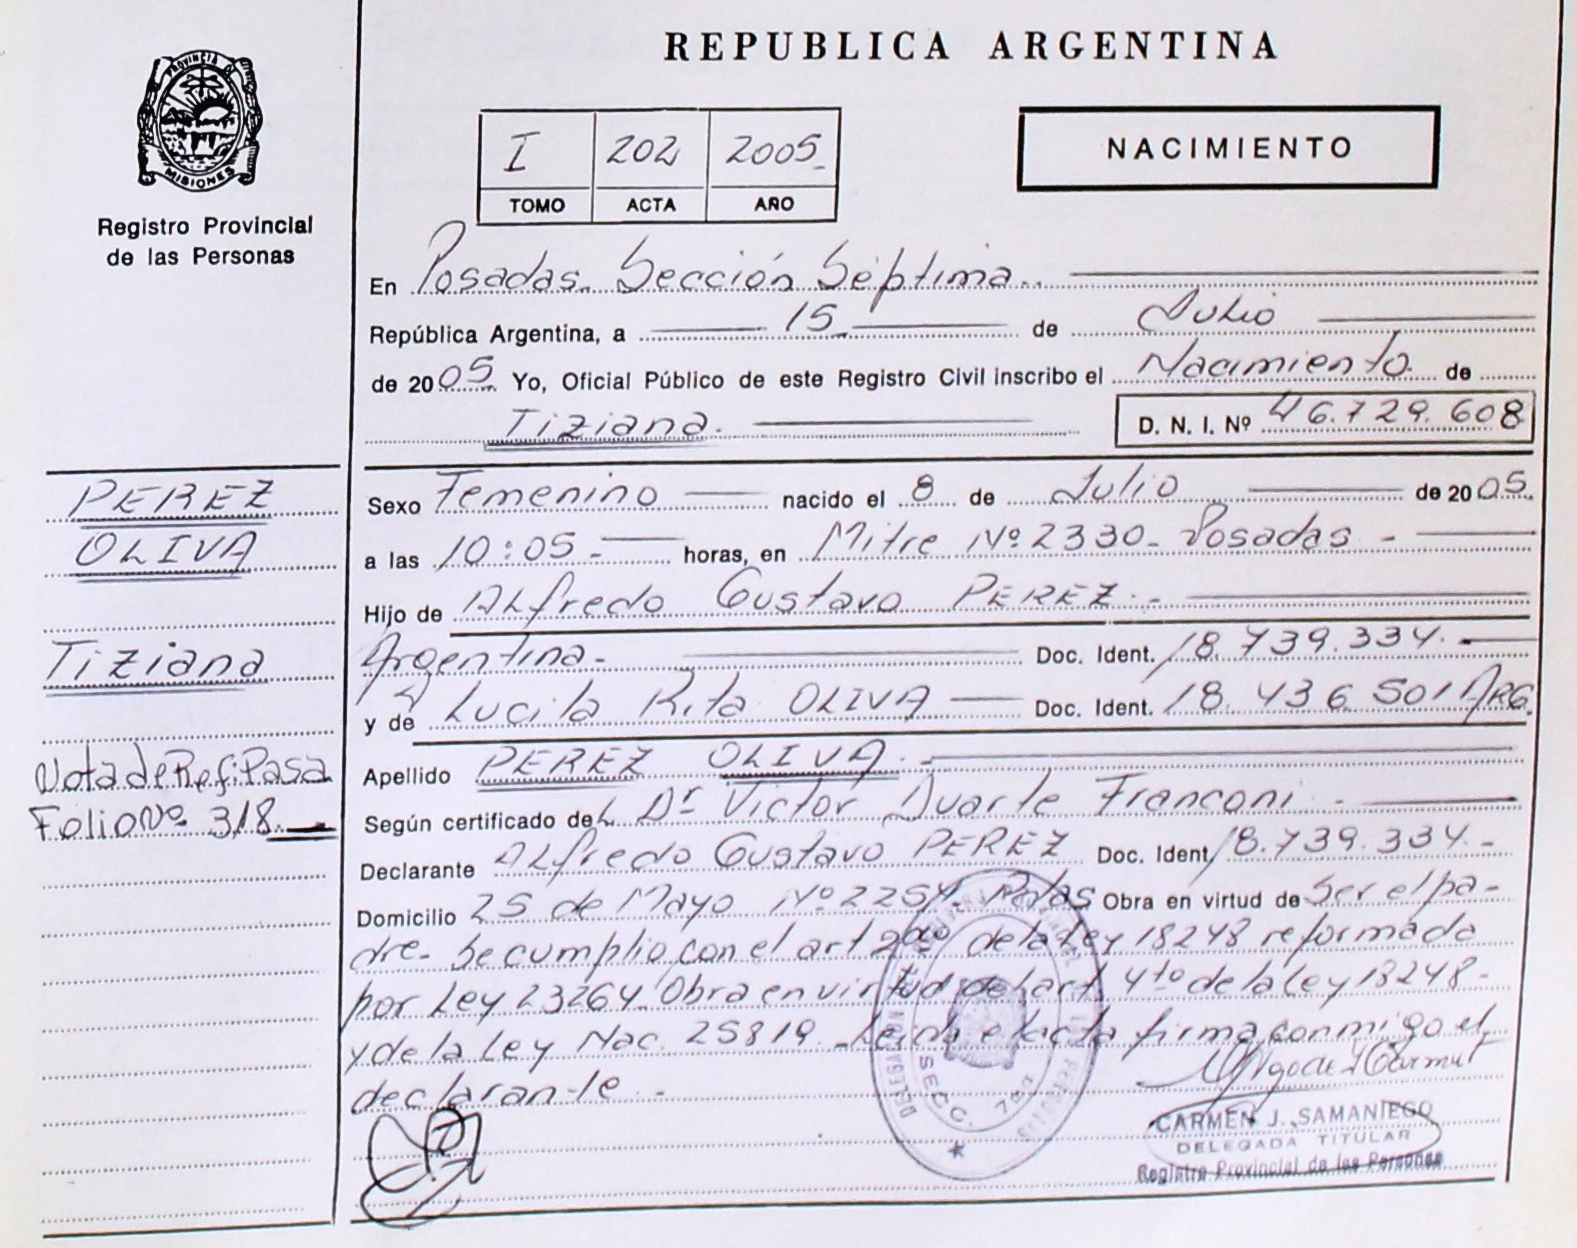 REPUBLICA ARGENTINA
PROVINCIA D
MISIONES
Registro Provincial
de las Personas
I 202 2005
TOMO ACTA AÑO
NACIMIENTO
En Posadas. Sección Séptima..
República Argentina, a 15 de Julio
de 2005. Yo, Oficial Público de este Registro Civil inscribo el Nacimiento de
Tiziana. D. N. I. Nº 46.729.608
PEREZ
OLIVA
Tiziana
Nota de Ref: Pasa
Folio Nº 318.
Sexo Femenino nacido el 8 de Julio de 2005.
a las 10:05.- horas, en Mitre Nº 2330- Posadas -
Hijo de Alfredo Gustavo PEREZ.-
Argentina.- Doc. Ident. 18.739.334.-
y de Lucila Rita OLIVA Doc. Ident. 18.436.501 ARG.
Apellido PEREZ OLIVA.
Según certificado del Dr Victor Duarte Franconi.-
Declarante Alfredo Gustavo PEREZ Doc. Ident 18.739.334.-
Domicilio 25 de Mayo Nº 2254. Pdas Obra en virtud de Ser el pa-
dre- Se cumplio con el art 2do de la Ley 18248 reformada
por Ley 23264. Obra en virtud del art. 4to de la Ley 18248-
y de la Ley Nac. 25819. Leida el acta firma conmigo el
declarante.-
SECC. 7ma
CARMEN J. SAMANIEGO
DELEGADA TITULAR
Registro Provincial de las Personas